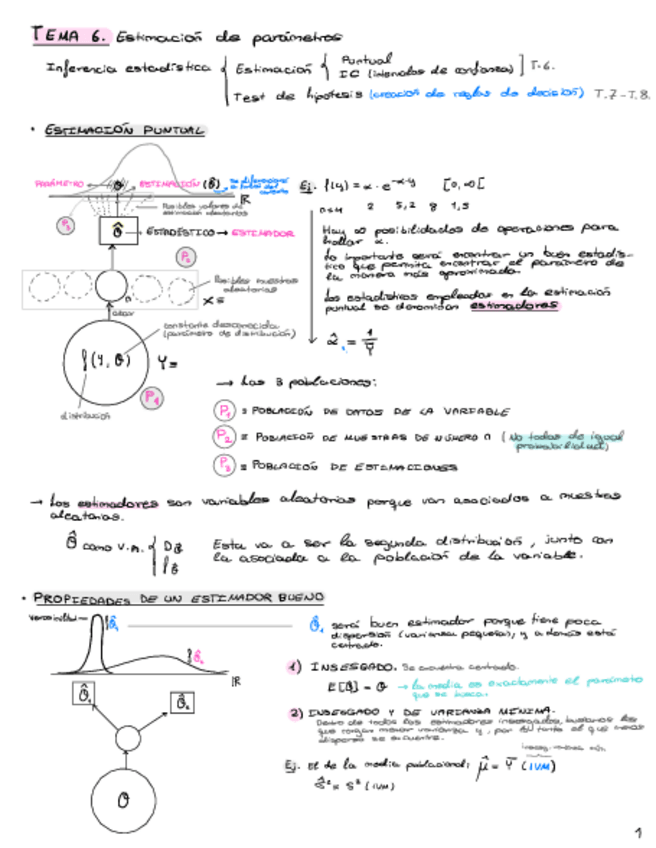 TEMA 6. Estimación de parámetros
Inferencia estadística { Estimación { Puntual
IC (intervalos de confianza) ] T.6.
Test de hipótesis (creación de reglas de decisión) T.7-T.8.
• ESTIMACIÓN PUNTUAL
PARÁMETRO
θ
ESTIMACIÓN (θ̂)
ℝ
Posibles valores de
estimación aleatorios
P3
θ̂ → ESTADÍSTICO → ESTIMADOR
P2
Posibles muestras
aleatorias
n
X =
azar
constante desconocida
(parámetro de distribución)
f(Y, θ) Y =
P1
distribución
Ej. f(y) = α · e^-αy [0, ∞[
n=4 2 5,2 8 1,5
Hay ∞ posibilidades de operaciones para
hallar α.
Lo importante será encontrar un buen estadís-
tico que permita encontrar el parámetro de
la manera más aproximada.
Los estadísticos empleados en la estimación
puntual se denominan estimadores
α̂ = 1/Ȳ
→ Las 3 poblaciones:
P1 = POBLACIÓN DE DATOS DE LA VARIABLE
P2 = POBLACIÓN DE MUESTRAS DE NÚMERO n (No todas de igual
probabilidad)
P3 = POBLACIÓN DE ESTIMACIONES
→ Los estimadores son variables aleatorias porque van asociados a muestras
aleatorias.
θ̂ como v.a. { Dθ̂
fθ̂
Esta va a ser la segunda distribución, junto con
la asociada a la población de la variable.
• PROPIEDADES DE UN ESTIMADOR BUENO
verosimilitud
fθ̂1
fθ̂2
ℝ
θ̂1
θ̂2
θ
θ̂1 será buen estimador porque tiene poca
dispersión (varianza pequeña), y además está
centrado.
1) INSESGADO. Se encuentra centrado.
E[θ̂] = θ → la media es exactamente el parámetro
que se busca.
2) INSESGADO Y DE VARIANZA MÍNIMA.
Dentro de todos los estimadores insesgados, buscamos los
que tengan menor varianza y, por tanto el que menos
disperso se encuentre.
Ej. el de la media poblacional: μ̂ = Ȳ (IVM)
Ŝ² = S² (IVM)
1